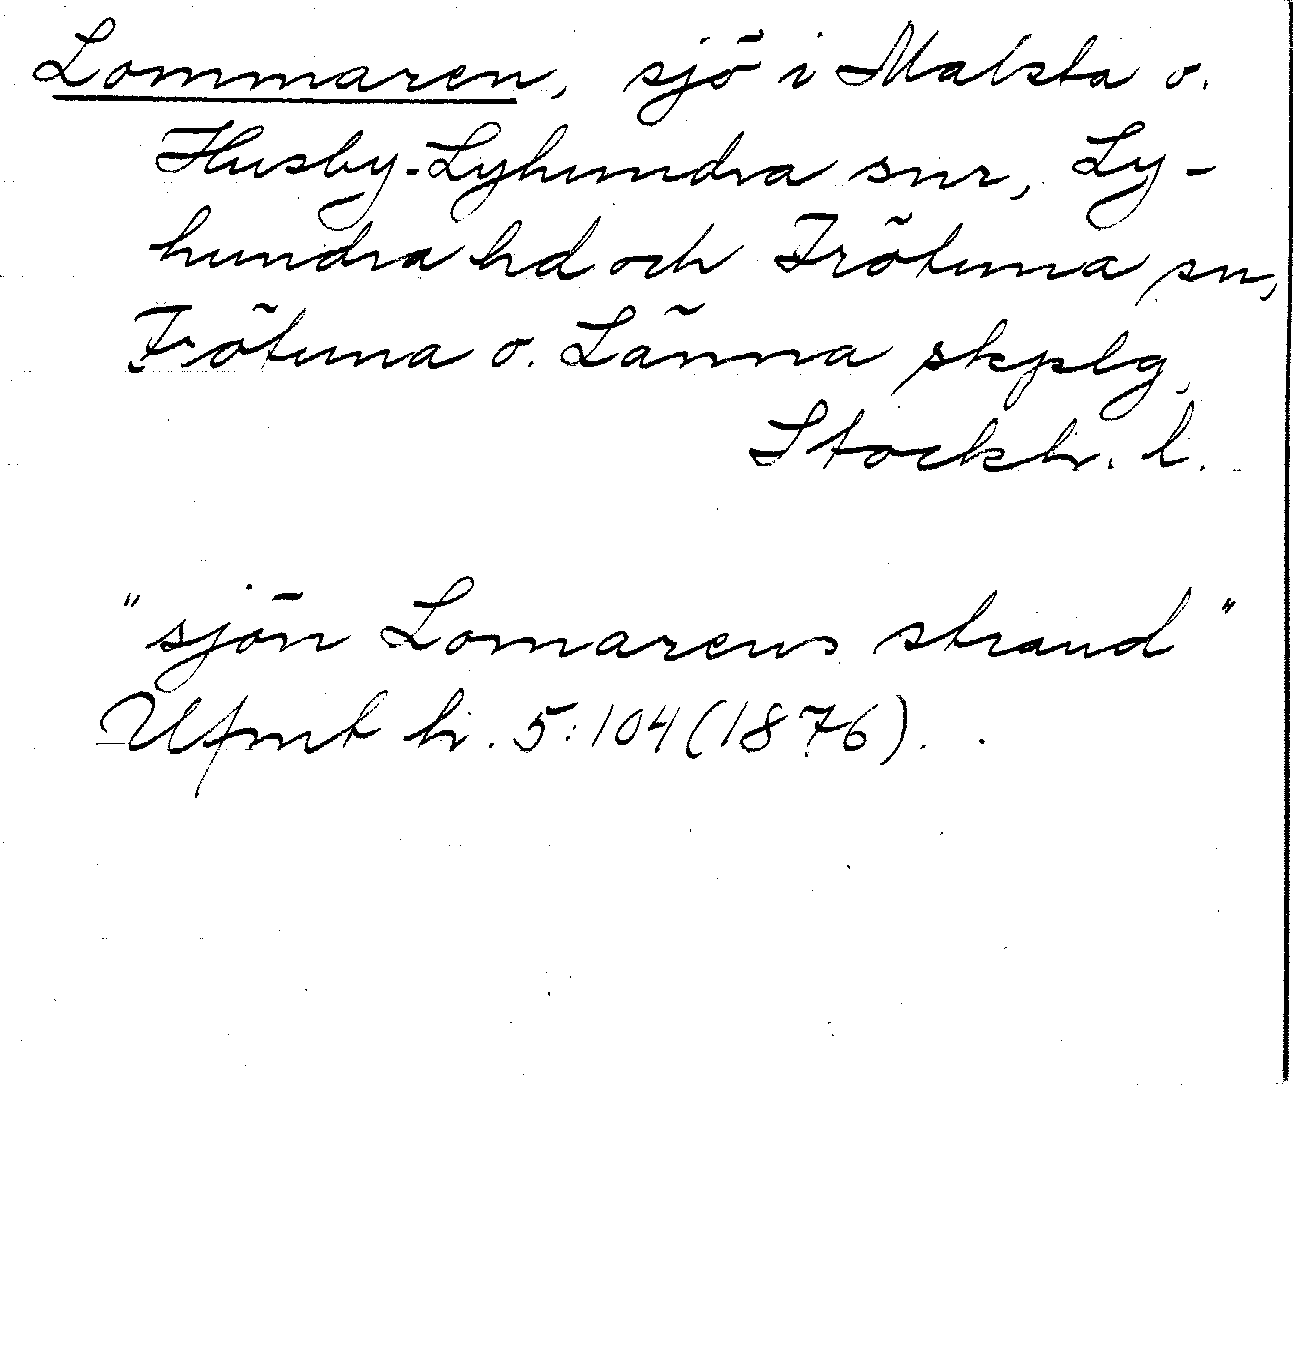 Lommaren, sjö i Malsta o.
Husby-Lyhundra snr, Ly-
hundra hd och Frötuna sn,
Frötuna o. Länna skplg,
Stockh. l.
"sjön Lomarens strand"
Ufmt h. 5:104 (1876).